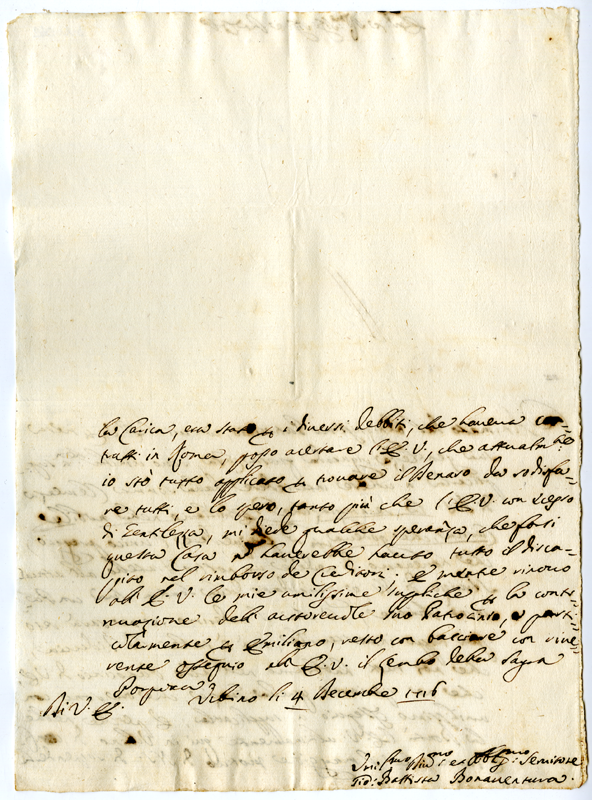 la Carica, era stato per i diversi debbiti, che haveva con=
tratti in Roma, posso accertare l'E. V., che attualmte
io stò tutto applicato per trovare il Denaro da sodisfa=
re tutti, e lo spero, tanto più che l'E. V. con
di Gentilezza, mi diede qualche speranza, che forsi
questa Casa nō haverebbe hauto tutto il disca=
pito nel rimborso de Creditori; E mentre rinovo
all' E. V. le mie umilissime suppliche per la conti=
nuazione dell' autorevole suo Patrocinio, e parti=
colarmente per Emiliano, resto con bacciare con rive=
rente ossequio all' E. V. il Lembo della Sagra
Porpora.
Di V. E. Urbino li 4 Decembre 1716
Umilmo Divmo et Obbligmo Servitore
Gio: Battista Bonaventura.